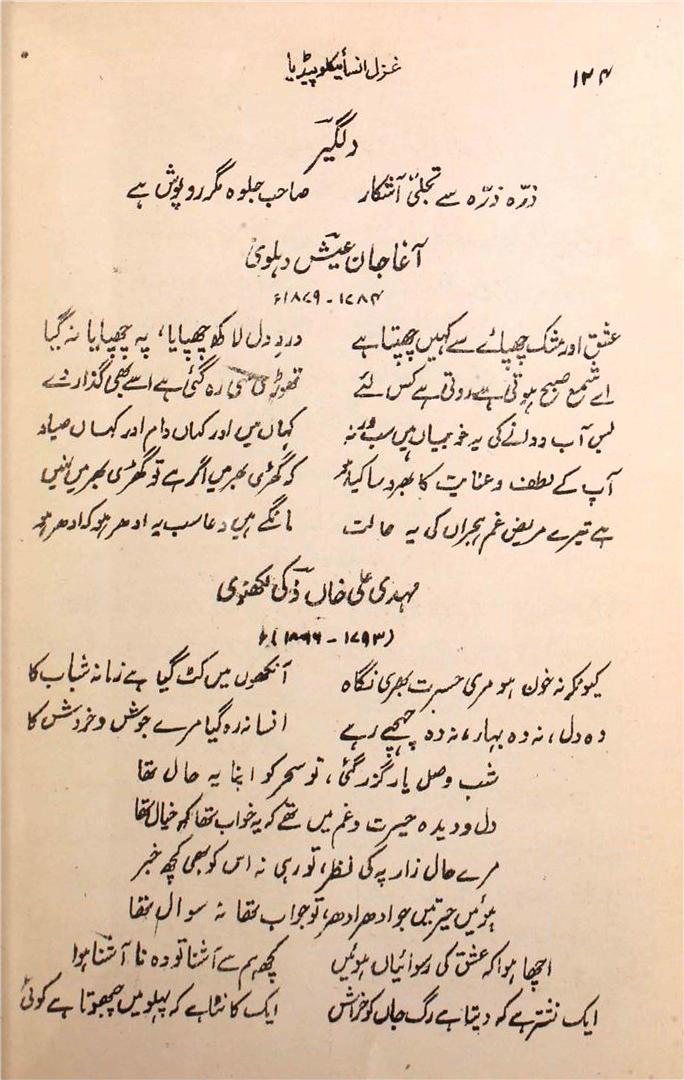 ۱۲۴ غزل انسائیکلوپیڈیا
دلگیر
ذرّہ ذرّہ سے تجلّی آشکار صاحب جلوہ مگر روپوش ہے
آغا جان عیش دہلوی
۱۷۸۴ - ۱۸۷۹ء
عشق اور مشک چھپائے سے کہیں چھپتا ہے دردِ دل لاکھ چھپایا، پہ چھپایا نہ گیا
اے شمع صبح ہوتی ہے روتی ہے کس لئے تھوڑی سی رہ گئی ہے اسے بھی گذار دے
بس آب و دانے کی یہ خوبیاں ہیں سب ورنہ کہاں میں اور کہاں دام اور کہاں صیاد
آپ کے لطف و عنایت کا بھروسا کیا ہو کہ گھڑی بھر میں اگر ہے تو گھڑی بھر میں نہیں
ہے تیرے مریض غم ہجراں کی یہ حالت مانگے ہیں دعا سب یہ ادھر ہو کہ ادھر ہو
مہدی علی خاں ذکی لکھنوی
(۱۷۹۳ - ۱۸۶۶ء)
کیونکر نہ خون ہو مری حسرت بھری نگاہ آنکھوں میں کٹ گیا ہے زمانہ شباب کا
وہ دل، نہ وہ بہار، نہ وہ چہچہے رہے افسانہ رہ گیا مرے جوش و خروش کا
شب وصل یار گزر گئی، تو سحر کو اپنا یہ حال تھا
دل و دیدہ حیرت و غم میں تھے کہ یہ خواب تھا کہ خیال تھا
مرے حال زار پہ کی نظر، تو رہی نہ اس کو بھی کچھ خبر
ہوئیں حیرتیں جو ادھر ادھر، تو جواب تھا نہ سوال تھا
اچھا ہوا کہ عشق کی رسوائیاں ہوئیں کچھ ہم سے آشنا تو وہ نا آشنا ہوا
ایک نشتر ہے کہ دیتا ہے رگ جاں کو خراش ایک کانٹا ہے کہ پہلو میں چبھوتا ہے کوئی